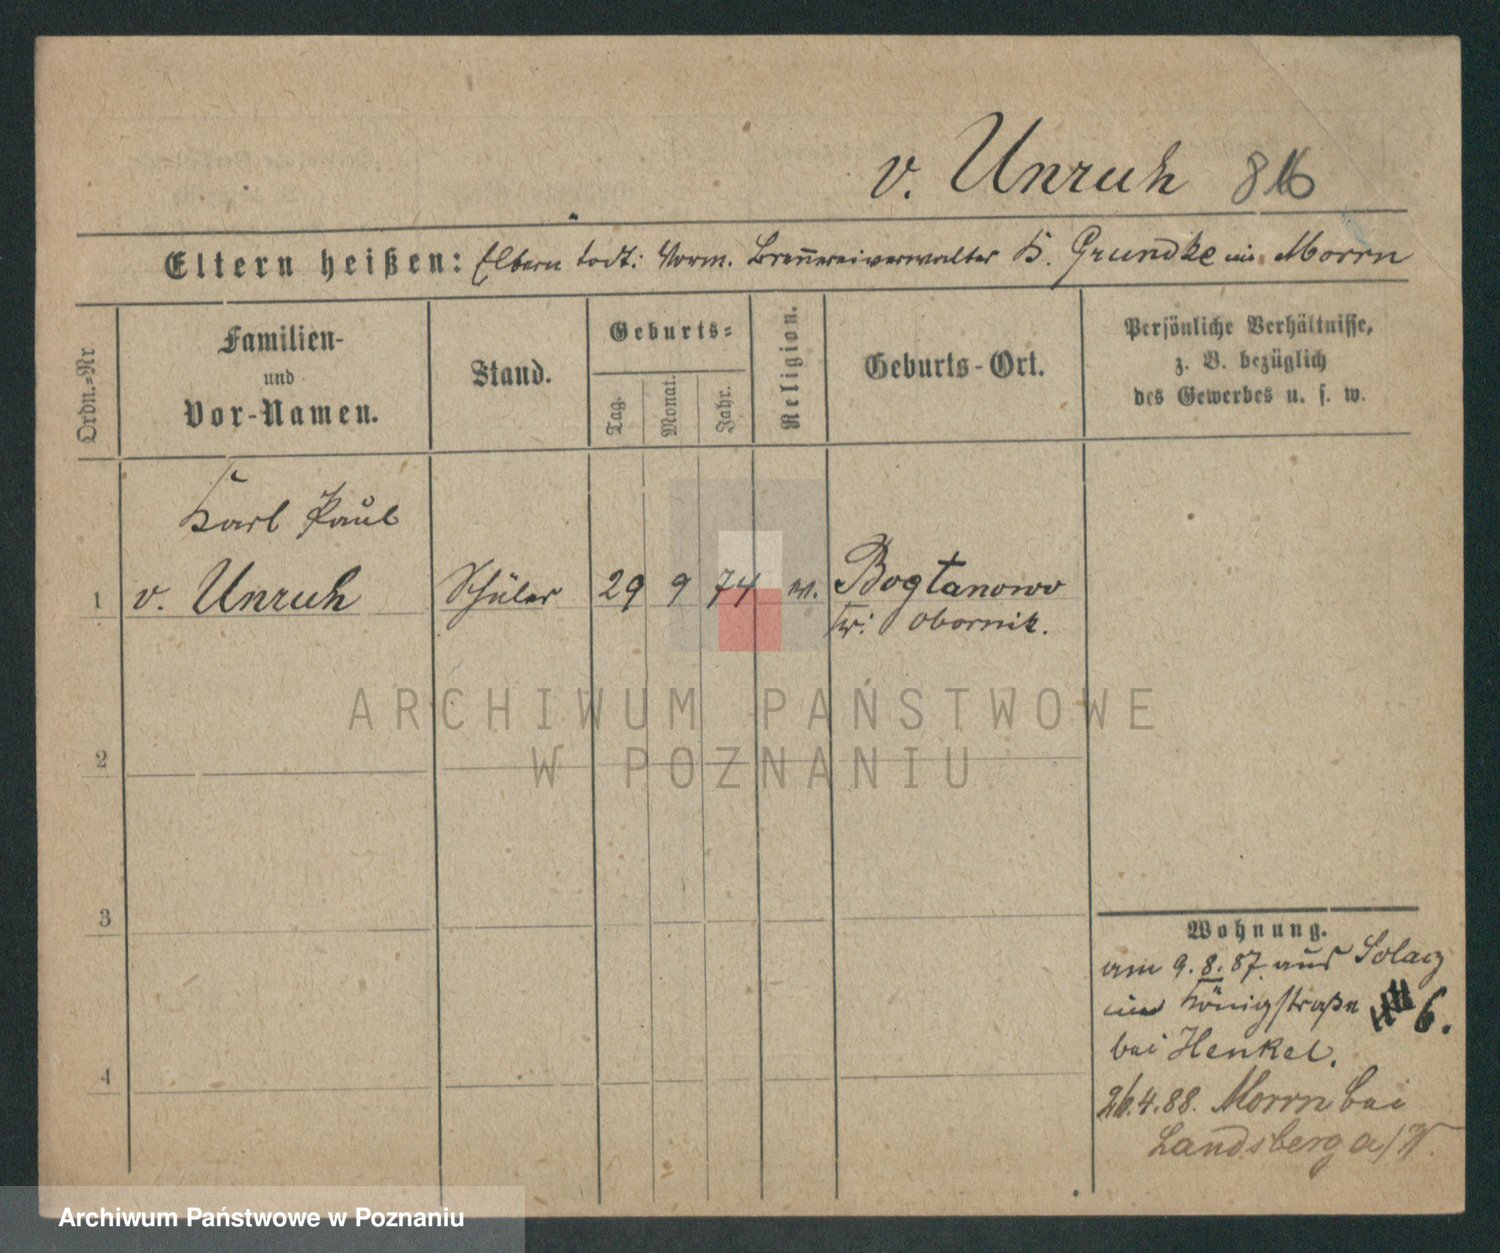 v. Unruh 816
Eltern heißen: Eltern todt: Vorm. Brennereiverwalter H. Grundke in Morrn
Ordn.=Nr
Familien-
und
Vor-Namen.
Stand.
Geburts=
Tag.
Monat.
Jahr.
Religion.
Geburts-Ort.
Persönliche Verhältnisse,
z. B. bezüglich
des Gewerbes u. s. w.
Karl Paul
1 v. Unruh Schüler 29 9 74 ev. Bogtanowo
Kr: Obornik.
2
3
4
Wohnung.
am 9. 8. 87 aus Solacz
in Königstraße 6.
bei Henkel.
26.4.88. Morrn bei
Landsberg a/W.
ARCHIWUM PAŃSTWOWE
W POZNANIU
Archiwum Państwowe w Poznaniu